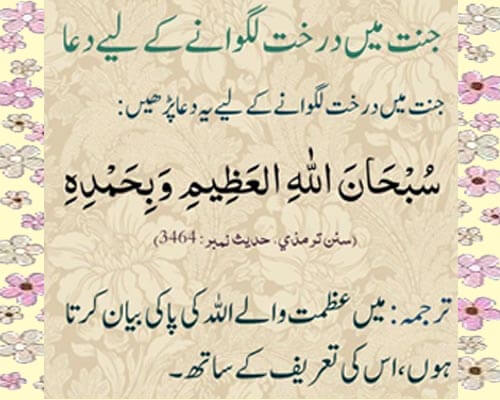 جنت میں درخت لگوانے کے لیے دعا
جنت میں درخت لگوانے کے لیے یہ دعا پڑھیں:
سُبْحَانَ اللّٰهِ العَظِيمِ وَبِحَمْدِهِ
(سنن ترمذي، حديث نمبر: 3464)
ترجمہ: میں عظمت والے اللہ کی پاکی بیان کرتا
ہوں، اس کی تعریف کے ساتھ۔